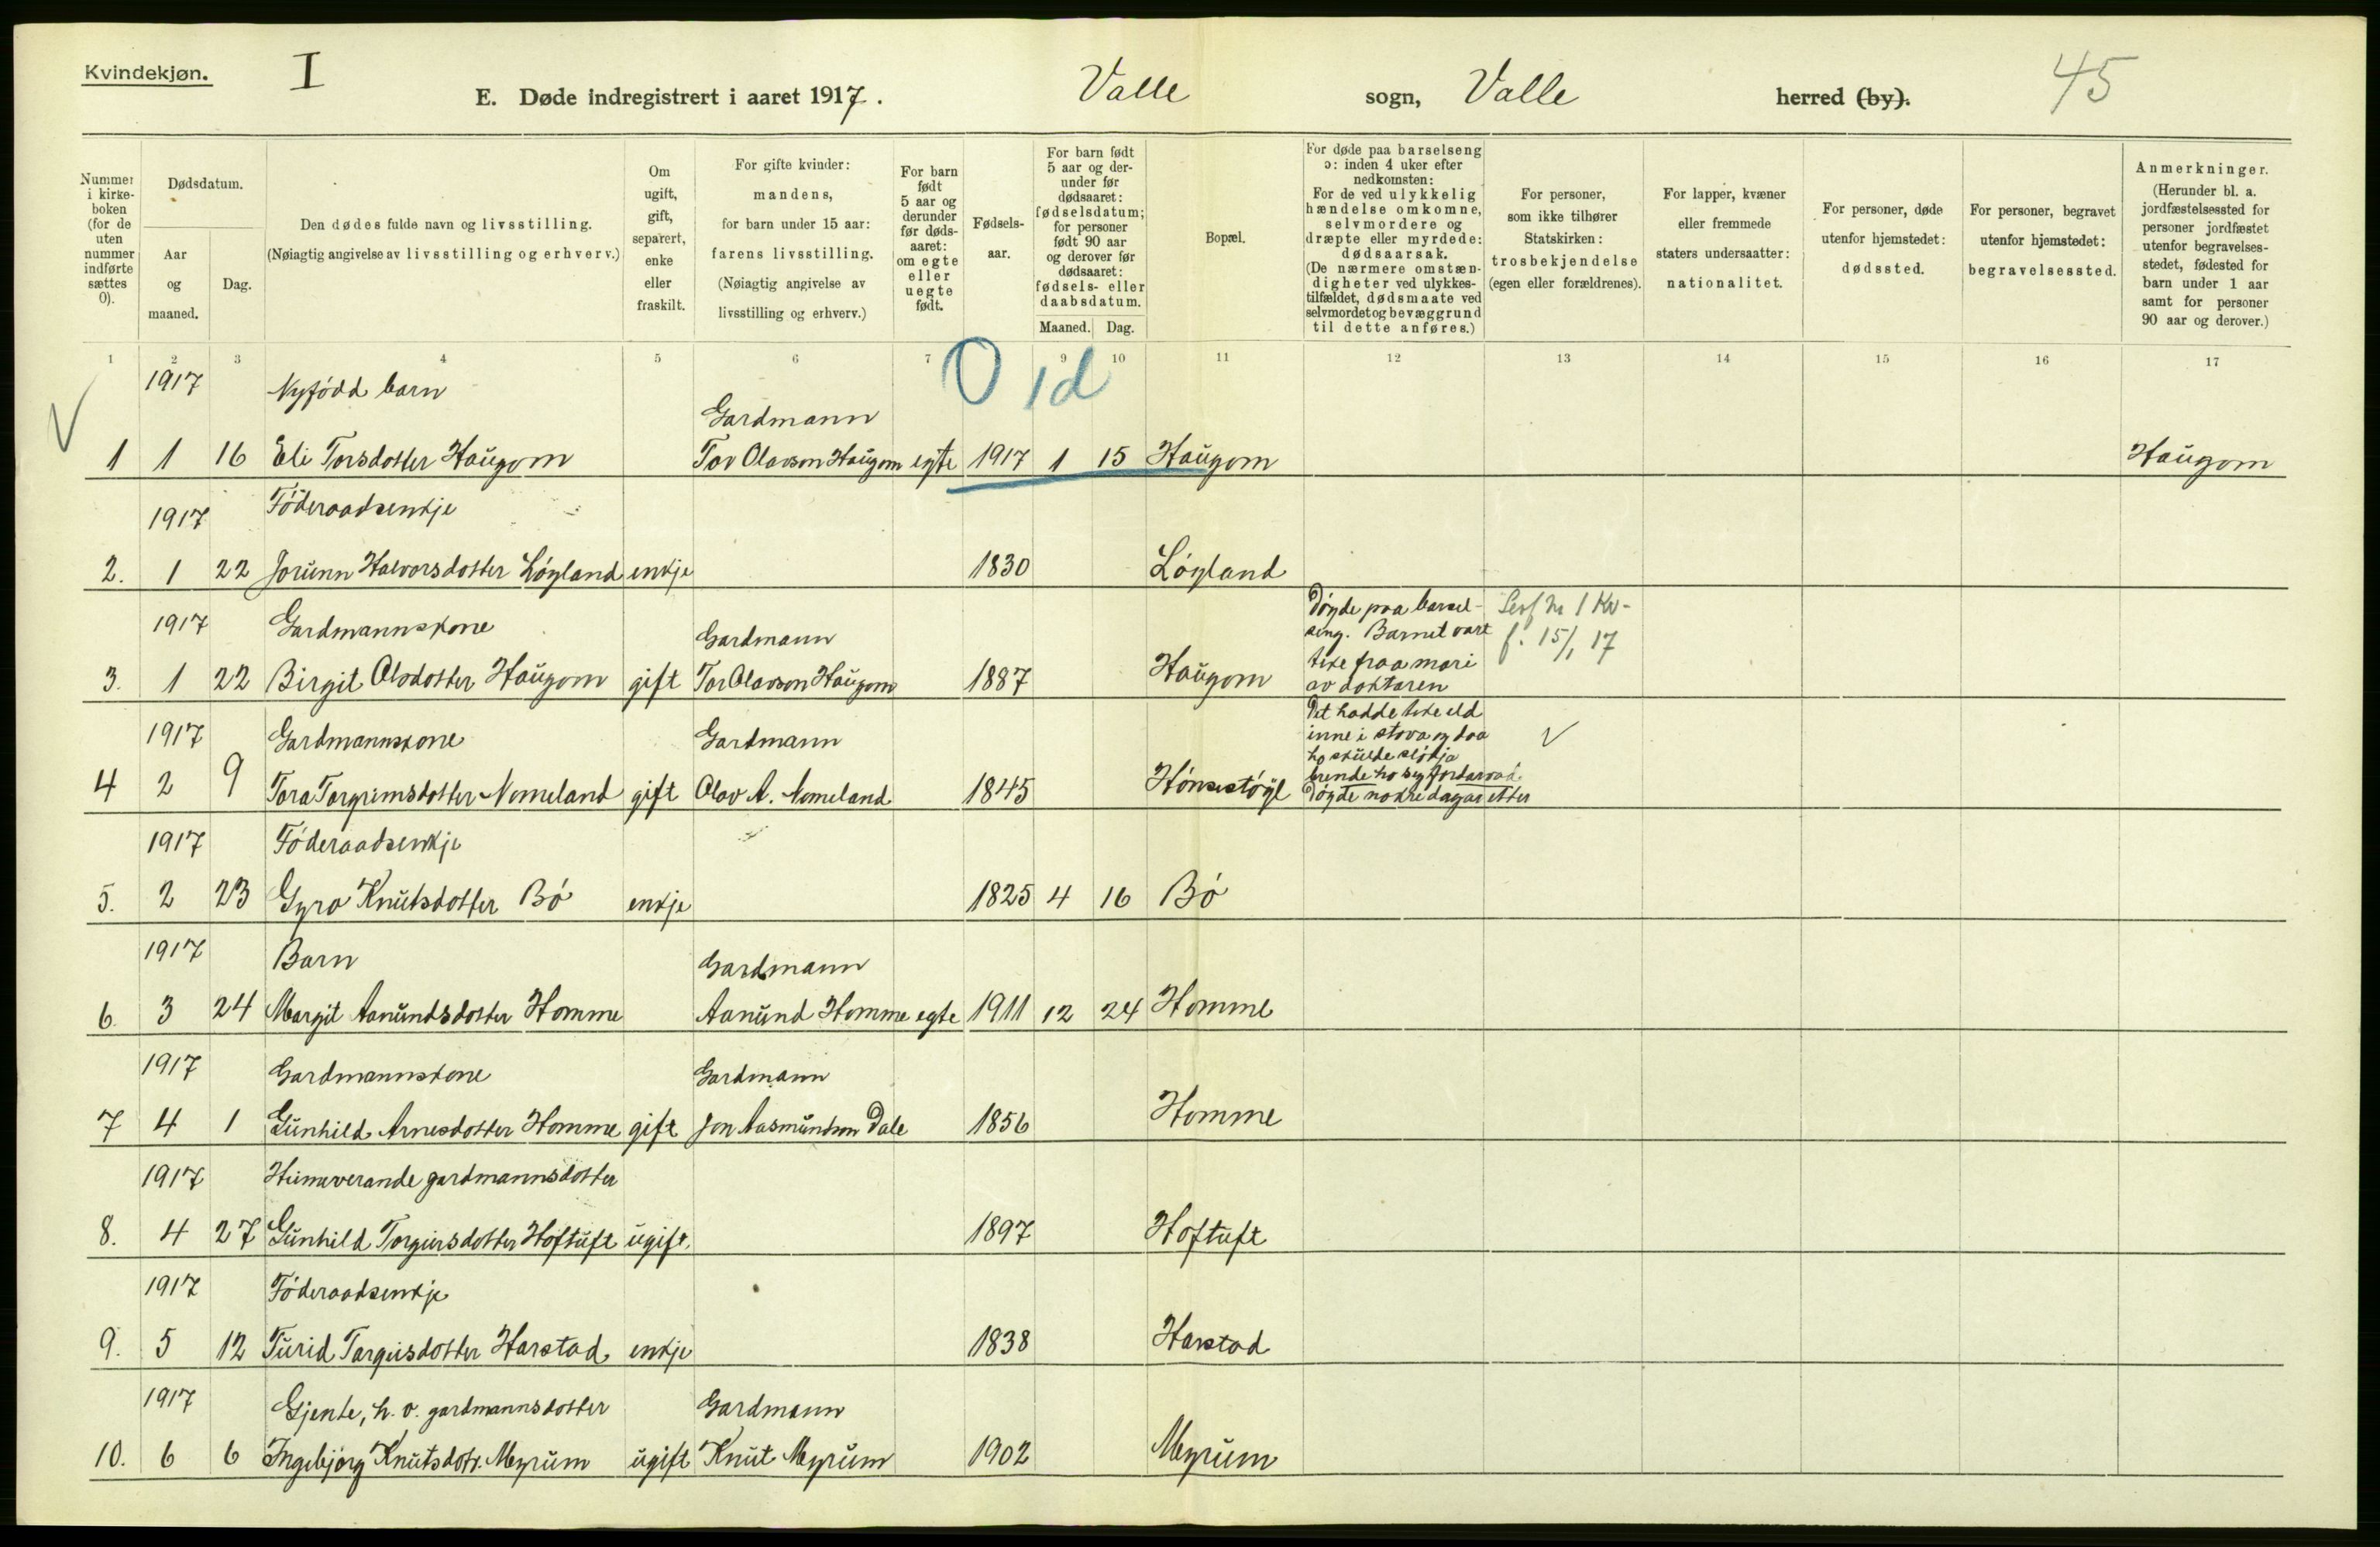 Kvindekjøn.
I
E. Døde indregistrert i aaret 1917.
Valle sogn, Valle herred (by).
45
Nummer i kirke-boken (for de uten nummer indførte sættes 0).
Dødsdatum.
Aar og maaned.
Dag.
Den dødes fulde navn og livsstilling.
(Nøiagtig angivelse av livsstilling og erhverv.)
Om ugift, gift, separert, enke eller fraskilt.
For gifte kvinder: mandens, for barn under 15 aar: farens livsstilling.
(Nøiagtig angivelse av livsstilling og erhverv.)
For barn født 5 aar og derunder før døds-aaret: om egte eller uegte født.
Fødsels-aar.
For barn født 5 aar og der-under før dødsaaret: fødselsdatum; for personer født 90 aar og derover før dødsaaret: fødsels- eller daabsdatum.
Maaned. Dag.
Bopæl.
For døde paa barselseng ɔ: inden 4 uker efter nedkomsten: For de ved ulykkelig hændelse omkomne, selvmordere og dræpte eller myrdede: dødsaarsak.
(De nærmere omstæn-digheter ved ulykkes-tilfældet, dødsmaate ved selvmordet og bevæggrund til dette anføres.)
For personer, som ikke tilhører Statskirken: trosbekjendelse (egen eller forældrenes).
For lapper, kvæner eller fremmede staters undersaatter: nationalitet.
For personer, døde utenfor hjemstedet: dødssted.
For personer, begravet utenfor hjemstedet: begravelsessted.
Anmerkninger.
(Herunder bl. a. jordfæstelsessted for personer jordfæstet utenfor begravelses-stedet, fødested for barn under 1 aar samt for personer 90 aar og derover.)
1 2 3 4 5 6 7 9 10 11 12 13 14 15 16 17
0 1d
1917 Nyfødd barn Gardmann
1 1 16 Eli Torsdotter Haugom Tor Olavson Haugom egte 1917 1 15 Haugom Haugom
1917 Føderaadsenkje
2. 1 22 Jorunn Halvorsdotter Løyland enkje 1830 Løyland
1917 Gardmannskone Gardmann
3. 1 22 Birgit Olsdotter Haugom gift Tor Olavson Haugom 1887 Haugom
Døyde paa barsel-
seng. Barnet vart
teke fraa mori
av doktaren
nr 1 Kv-
f. 15/1 17
1917 Gardmannskone Gardmann
4 2 9 Tora Torgrimsdotter Nomeland gift Olav A. Nomeland 1845 Hønsestøyl
Det hadde teke eld
inne i stova og daa
ho skulde sløkja
brende ho seg fordarvad.
Døyde nokre dagar etter
1917 Føderaadsenkje
5. 2 23 Gyro Knutsdotter Bø enkje 1825 4 16 Bø
1917 Barn Gardmann
6. 3 24 Margit Aanundsdotter Homme Aanund Homme egte 1911 12 24 Homme
1917 Gardmannskone Gardmann
7 4 1 Gunhild Arnesdotter Homme gift Jon Aasmundson Dale 1856 Homme
1917 Heimeverande gardmannsdotter
8. 4 27 Gunhild Torgeirsdotter Hoftuft ugift. 1897 Hoftuft
1917 Føderaadsenkje
9. 5 12 Turid Targeisdotter Harstad enkje 1838 Harstad
1917 Gjente, h. v. gardmannsdotter Gardmann
10. 6 6 Ingebjørg Knutsdotr. Myrum ugift Knut Myrum 1902 Myrum